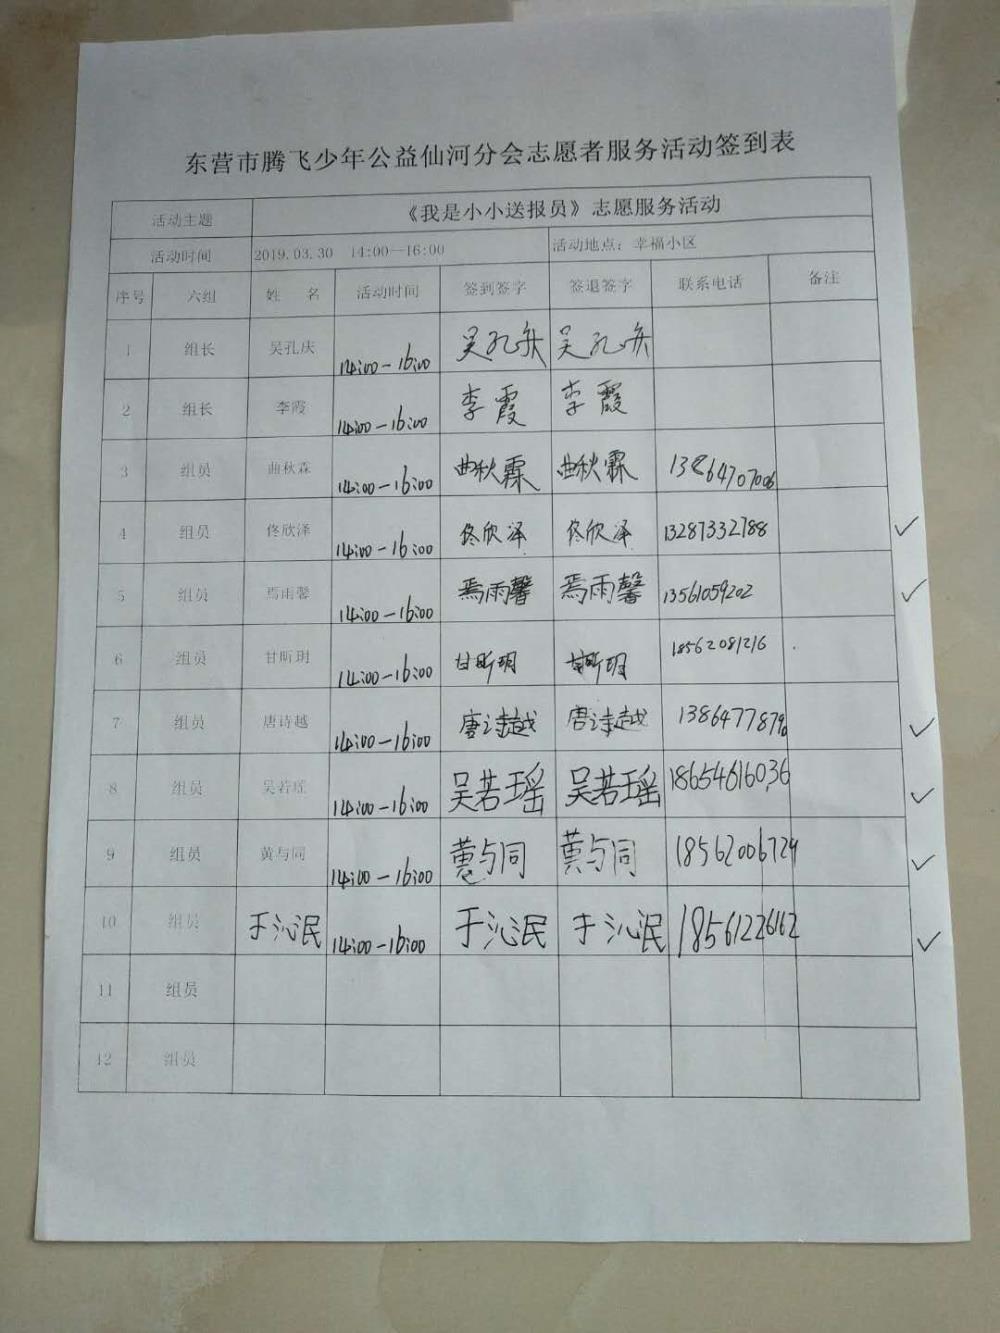 东营市腾飞少年公益仙河分会志愿者服务活动签到表
活动主题 《我是小小送报员》志愿服务活动
活动时间 2019.03.30 14:00—16:00 活动地点：幸福小区
序号 六组 姓 名 活动时间 签到签字 签退签字 联系电话 备注
1 组长 吴孔庆 14:00-16:00 吴孔庆 吴孔庆
2 组长 李霞 14:00-16:00 李霞 李霞
3 组员 曲秋霖 14:00-16:00 曲秋霖 曲秋霖 13864707006
4 组员 佟欣泽 14:00-16:00 佟欣泽 佟欣泽 13287332788
5 组员 焉雨馨 14:00-16:00 焉雨馨 焉雨馨 13561059202
6 组员 甘昕玥 14:00-16:00 甘昕玥 甘昕玥 18562081216
7 组员 唐诗越 14:00-16:00 唐诗越 唐诗越
8 组员 吴若瑶 14:00-16:00 吴若瑶 吴若瑶 18654616036
9 组员 黄与同 14:00-16:00 黄与同 黄与同 18562006729
10 组员 于沁民 14:00-16:00 于沁民 于沁民 18561226162
11 组员
12 组员